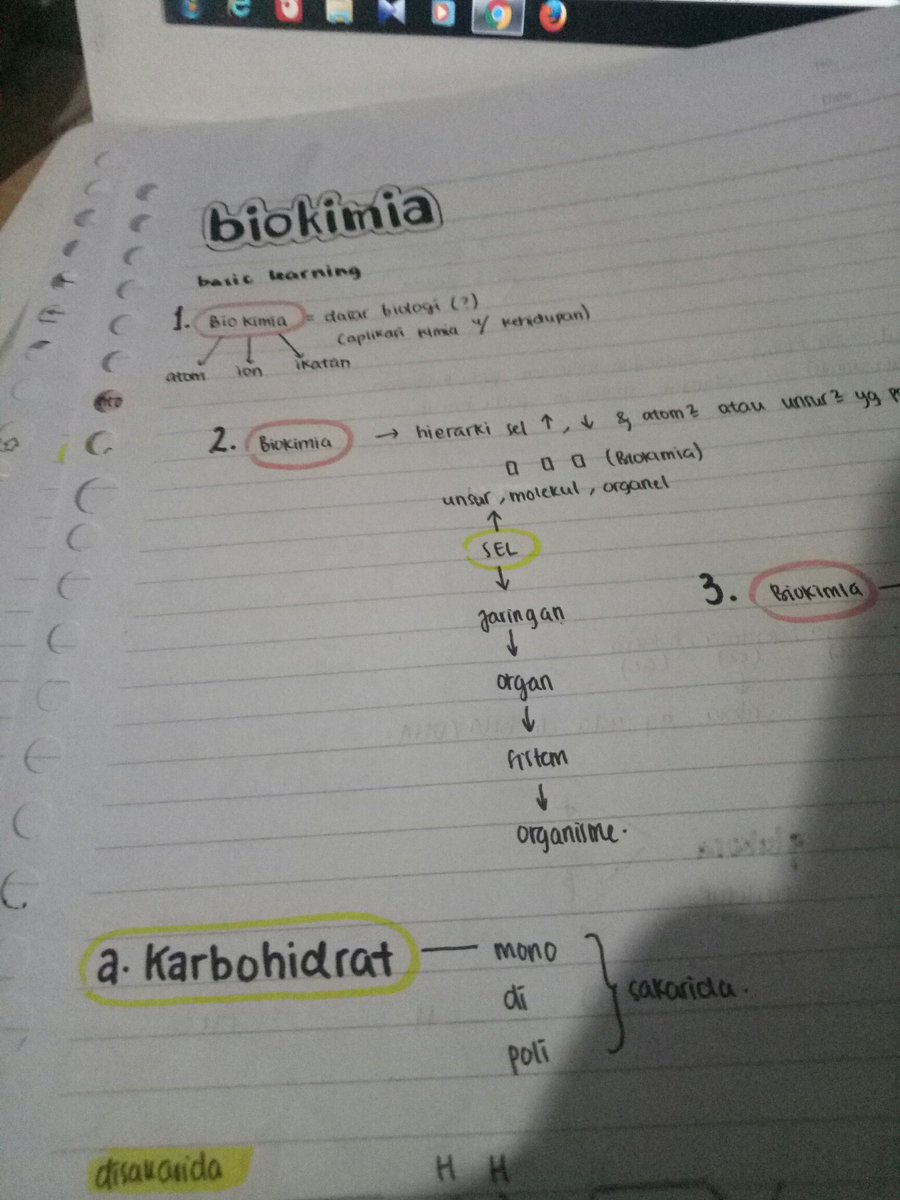 biokimia
basic learning
1. Biokimia = dasar biologi (?)
(aplikasi kimia u/ kehidupan)
atom ion ikatan
2. Biokimia → hierarki sel ↑, ↓ & atom2 atau unsur2 yg
(Biokimia)
unsur, molekul, organel
↑
SEL
↓
Jaringan
3. Biokimia
↓
organ
↓
sistem
↓
organisme.
a. Karbohidrat — mono
di
sakarida.
poli
disakarida H H